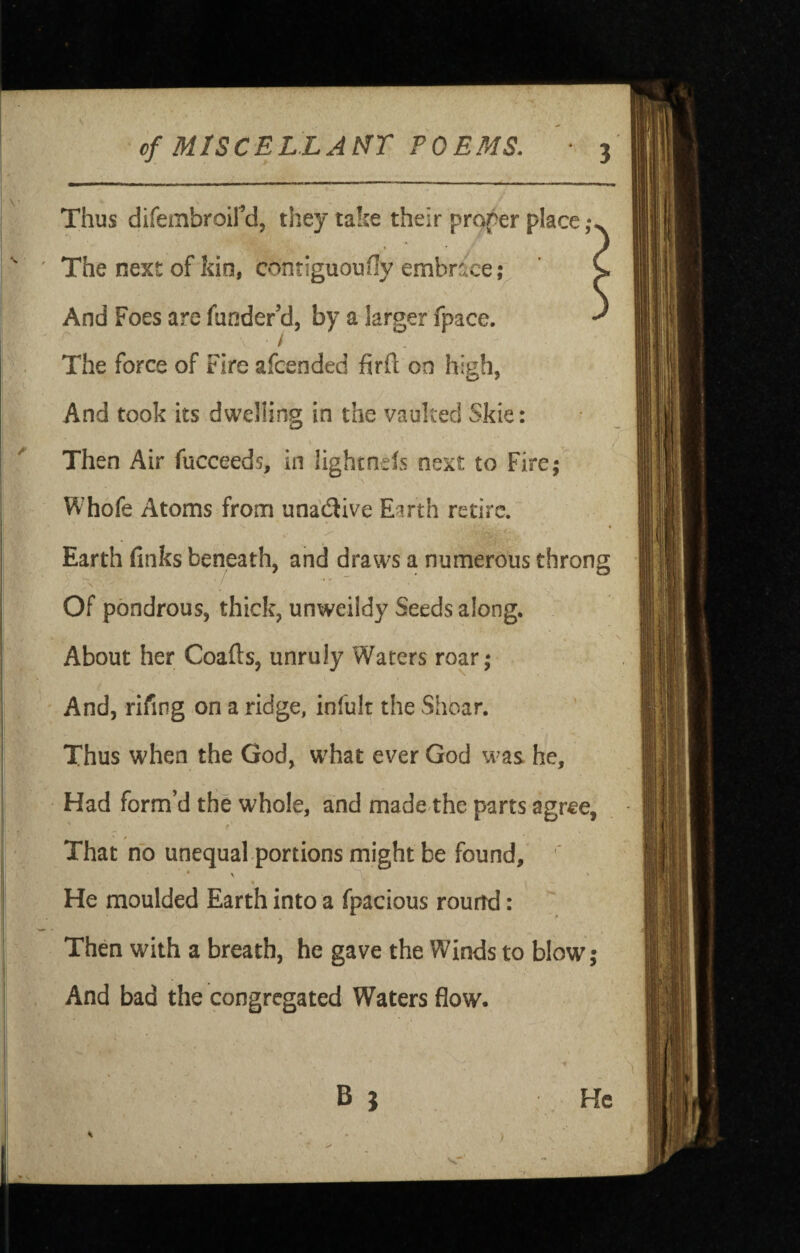 of MISCELLANY POEMS. 3
Thus diſembroil'd, they take their proper place;
The next of kin, contiguouſly embrace;
And Foes are ſunder'd, by a larger ſpace.
The force of Fire aſcended firſt on high,
And took its dwelling in the vaulted Skie:
Then Air ſucceeds, in lightneſs next to Fire;
Whoſe Atoms from unactive Earth retire.
Earth ſinks beneath, and draws a numerous throng
Of pondrous, thick, unweildy Seeds along.
About her Coaſts, unruly Waters roar;
And, riſing on a ridge, inſult the Shoar.
Thus when the God, what ever God was he,
Had form'd the whole, and made the parts agree,
That no unequal portions might be found,
He moulded Earth into a ſpacious round:
Then with a breath, he gave the Winds to blow;
And bad the congregated Waters flow.
B 3 He